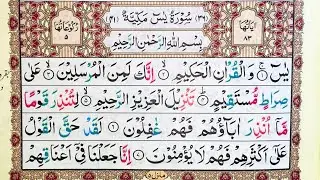 اٰيَاتُهَا ٨٣
(٣٦) سُوْرَةُ يٰسٓ مَكِّيَّةٌ (٤١)
رُكُوْعَاتُهَا ٥
بِسْمِ اللّٰهِ الرَّحْمٰنِ الرَّحِيْمِ
يٰسٓ ۚ﴿١﴾ وَالْقُرْاٰنِ الْحَكِيْمِ ۙ﴿٢﴾ اِنَّكَ لَمِنَ الْمُرْسَلِيْنَ ۙ﴿٣﴾ عَلٰى
صِرَاطٍ مُّسْتَقِيْمٍ ؕ﴿٤﴾ تَنْزِيْلَ الْعَزِيْزِ الرَّحِيْمِ ۙ﴿٥﴾ لِتُنْذِرَ قَوْمًا
مَّاۤ اُنْذِرَ اٰبَآؤُهُمْ فَهُمْ غٰفِلُوْنَ ﴿٦﴾ لَقَدْ حَقَّ الْقَوْلُ
عَلٰۤى اَكْثَرِهِمْ فَهُمْ لَا يُؤْمِنُوْنَ ﴿٧﴾ اِنَّا جَعَلْنَا فِيْۤ اَعْنَاقِهِمْ